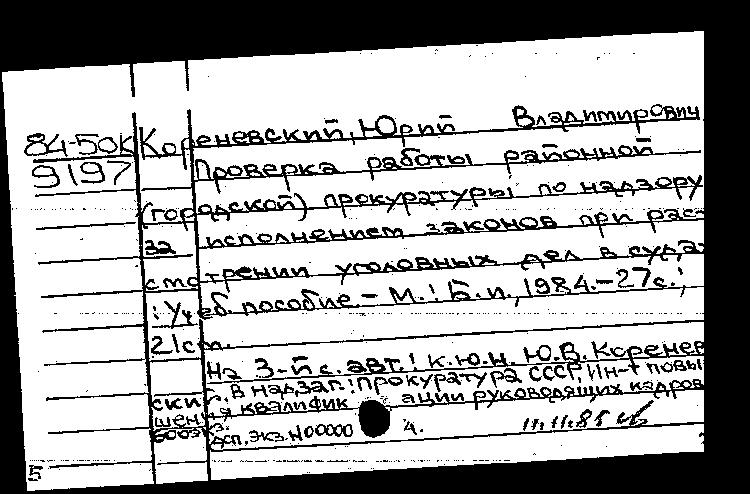 84-50к Кореневский, Юрий Владимирович
9197 Проверка работы районной
(городской) прокуратуры по надзору
за исполнением законов при рас-
смотрении уголовных дел в судах
: Учеб. пособие. – М. : Б. и., 1984. – 27 с. ;
21 см.
На 3-й с. авт.: к.ю.н. Ю.В. Коренев
ский. В надзаг.: Прокуратура СССР, Ин-т повы
шения квалификации руководящих кадров
600 экз.
ДСП, экз. N00000 4. 11.11.85
5